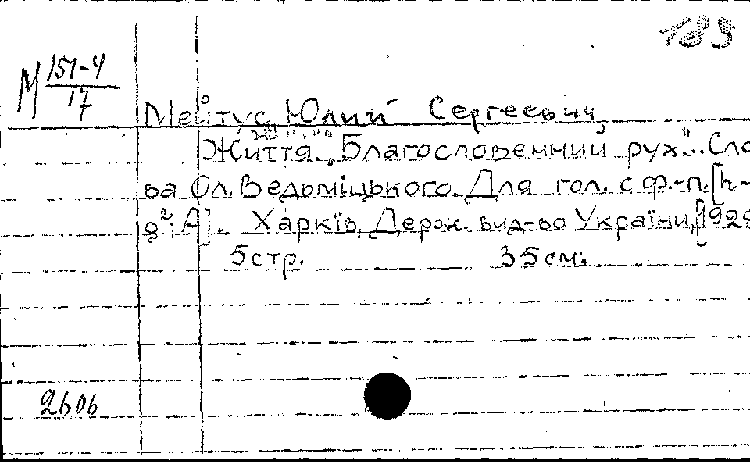 189
М 151-4/17
Мейтус, Юлий Сергеевич,
Життя. "Благословенний рух". Сло-
ва Ол. Ведьміцького. Для гол. с ф.-п. [h-
g²; A]. Харків, Держ. вид-во України, [1929
5 стр. 35 см.
2606